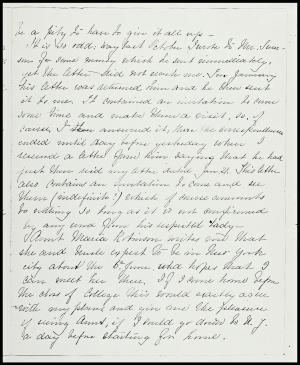 be a pity to have to give it all up—
It is so odd; way last October I wrote to Mr. 
sen for some money which he sent immediately,
yet the letter did not reach me. In January
his letter was returned him and he then sent
it to me. It contained an invitation to come
some time and make them a visit, so, of
course, I answered it, then the correspondence
ended until day before yesterday when I
received a letter from him saying that he had
just then recd my letter dated Jan 21. This letter
also contains an invitation to come and see
them (indefinite!) which of course amounts
to nothing so long as it is not confirmed
by any word from his respected lady—
Aunt Maria Robinson writes me that
she and Uncle expect to be in New York
city about the 6th June and hopes that I
can meet her there. If I come home before
the close of College this would exactly agree
with my plans and give me the pleasure
of seeing Aunt, if I could go down to N.Y.
a day before starting for home.